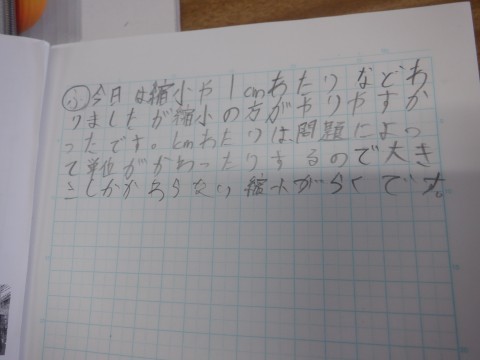 ふ今日は縮小や1cmあたりなどわ
りましたが縮小の方がやりやすか
ったです。cmあたりは問題によっ
て単位がかわったりするので大き
さしかかわらない縮小がらくです。